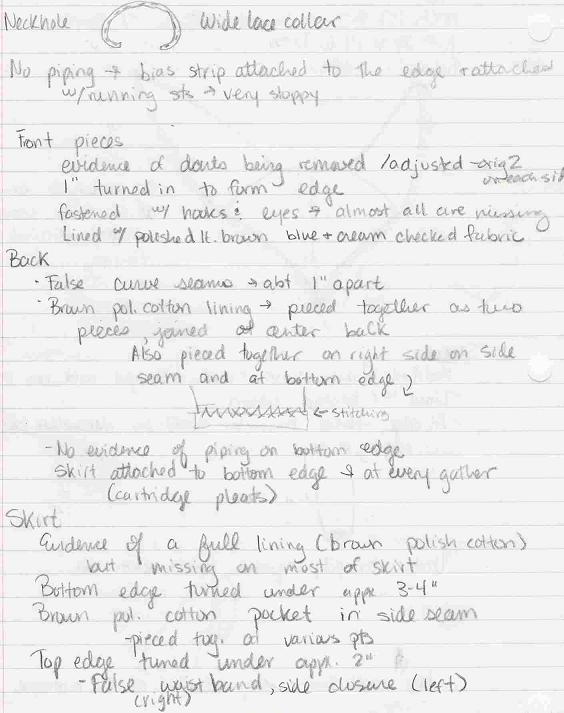 Neckhole Wide lace collar
No piping → bias strip attached to the edge + attached
w/running sts → very sloppy
Front pieces
evidence of darts being removed /adjusted - orig 2
on each side
1" turned in to form edge
fastened w/ hooks & eyes → almost all are missing
Lined w/ polished lt. brown blue + cream checked fabric
Back
· False curve seams → abt 1" apart
· Brown pol. cotton lining → pieced together as two
pieces, joined at center back
Also pieced together on right side on side
seam and at bottom edge
← stitching
- No evidence of piping on bottom edge
Skirt attached to bottom edge & at every gather
(cartridge pleats)
Skirt
Evidence of a full lining (brown polish cotton)
but missing on most of skirt
Bottom edge turned under appx 3-4"
Brown pol. cotton pocket in side seam
- pieced tog. at various pts
Top edge turned under appx. 2"
- False waist band, side closure (left)
(right)